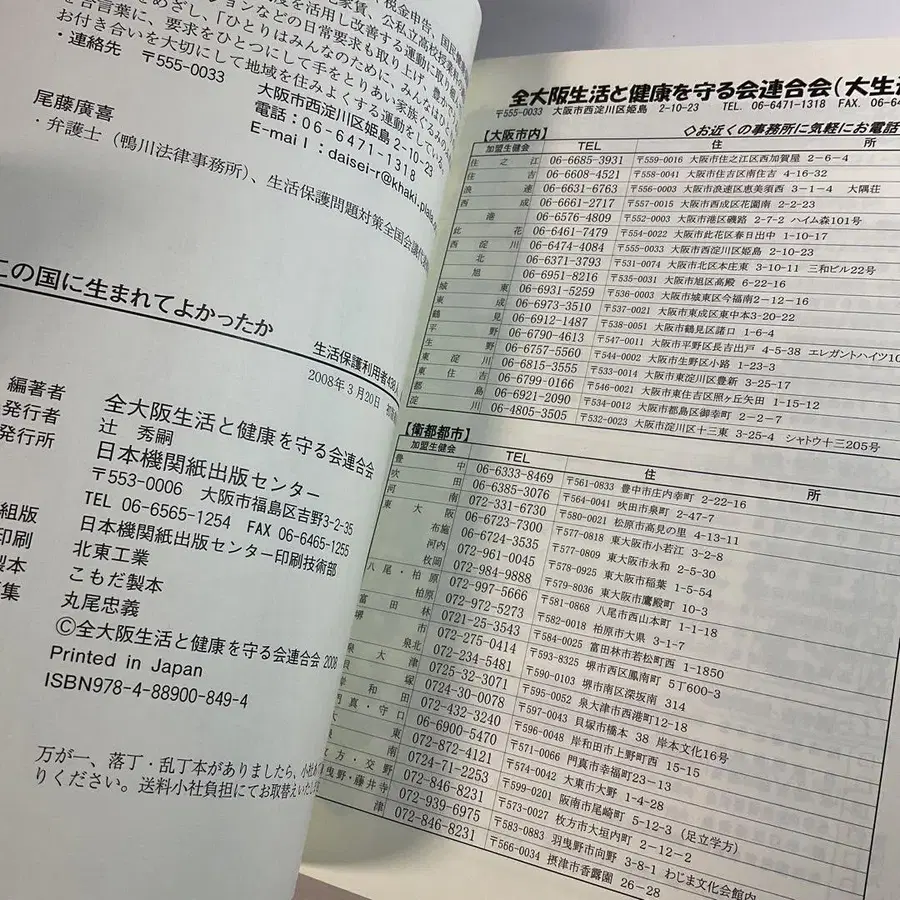 税金申告、国民
家賃、公私立高校授業料
度を活用し改善する運動に取り組
ションなどの日常要求も取り上げ、豊か
をめざし、「ひとりはみんなのために、みんなはひと
を合言葉に、要求をひとつにして手をとりあい家族ぐるみの
お付き合いを大切にして地域を住みよくする運動をしている。
・連絡先 〒555-0033
大阪市西淀川区姫島 2-10-23
電話：06-6471-1318
E-mail：daisei-r@khaki.plala.
尾藤廣喜
・弁護士（鴨川法律事務所）、生活保護問題対策全国会議代表
この国に生まれてよかったか
生活保護利用者
2008年3月20日
編著者 全大阪生活と健康を守る会連合会
発行者 辻 秀嗣
発行所 日本機関紙出版センター
〒553-0006 大阪市福島区吉野3-2-35
TEL 06-6565-1254 FAX 06-6465-1255
組版 日本機関紙出版センター印刷技術部
印刷 北東工業
製本 こもだ製本
集 丸尾忠義
©全大阪生活と健康を守る会連合会 2008
Printed in Japan
ISBN978-4-88900-849-4
万が一、落丁・乱丁本がありましたら、小社あ
りください。送料小社負担にてお取替えいたし
全大阪生活と健康を守る会連合会(大生
〒555-0033 大阪市西淀川区姫島 2-10-23 TEL. 06-6471-1318 FAX. 06-6
【大阪市内】 ◇お近くの事務所に気軽にお電話
加盟生健会 TEL 住 所
住之江 06-6685-3931 〒559-0016 大阪市住之江区西加賀屋 2-6-4
住吉 06-6608-4521 〒558-0041 大阪市住吉区南住吉 4-16-32
浪速 06-6631-6763 〒556-0003 大阪市浪速区恵美須西 3-1-4 大隅荘
西成 06-6661-2717 〒557-0015 大阪市西成区花園南 2-2-23
港 06-6576-4809 〒552-0003 大阪市港区磯路 2-7-2 ハイム森101号
此花 06-6461-7479 〒554-0022 大阪市此花区春日出中 1-10-17
西淀川 06-6474-4084 〒555-0033 大阪市西淀川区姫島 2-10-23
北 06-6371-3793 〒531-0074 大阪市北区本庄東 3-10-11 三和ビル22号
旭 06-6951-8216 〒535-0031 大阪市旭区高殿 6-22-16
城東 06-6931-5259 〒536-0003 大阪市城東区今福南2-12-16
東成 06-6973-3510 〒537-0021 大阪市東成区東中本3-20-22
鶴見 06-6912-1487 〒538-0051 大阪市鶴見区諸口 1-6-4
平野 06-6790-4613 〒547-0011 大阪市平野区長吉出戸 4-5-38 エレガントハイツ10
生野 06-6757-5560 〒544-0002 大阪市生野区小路 1-23-3
東淀川 06-6815-3555 〒533-0014 大阪市東淀川区豊新 3-25-17
東住吉 06-6799-0166 〒546-0021 大阪市東住吉区照ヶ丘矢田 1-15-12
都島 06-6921-2090 〒534-0012 大阪市都島区御幸町 2-2-7
淀川 06-4805-3505 〒532-0023 大阪市淀川区十三東 3-25-4 シャトウ十三205号
【衛都都市】
加盟生健会 TEL 住 所
豊中 06-6333-8469 〒561-0833 豊中市庄内幸町 2-22-16
吹田 06-6385-3076 〒564-0041 吹田市泉町 2-47-7
河南 072-331-6730 〒580-0021 松原市高見の里 4-13-11
東大阪 06-6723-7300 〒577-0818 東大阪市小若江 3-2-8
布施 06-6724-3535 〒577-0809 東大阪市永和 2-5-30
河内 072-961-0045 〒578-0925 東大阪市稲葉 1-5-54
枚岡 072-984-9888 〒579-8036 東大阪市鷹殿町 10-3
八尾・柏原 072-997-5666 〒581-0868 八尾市西山本町 1-1-18
柏原 072-972-5273 〒582-0018 柏原市大県 3-1-7
富田林 0721-25-3543 〒584-0025 富田林市若松町西 1-1850
堺市 072-275-0414 〒593-8325 堺市西区鳳南町 5丁600-3
泉北 072-234-5481 〒590-0103 堺市南区深坂南 314
泉大津 0725-32-3071 〒595-0052 泉大津市西港町12-18
貝塚 0724-30-0078 〒597-0043 貝塚市橋本 38 岸本文化16号
岸和田 072-432-3240 〒596-0048 岸和田市上野町西 15-15
門真・守口 06-6900-5470 〒571-0066 門真市幸福町23-13
大東 072-872-4121 〒574-0042 大東市大野 1-4-28
泉南 0724-71-2253 〒599-0201 阪南市尾崎町 5-12-3（足立学方）
枚方・交野 072-846-8231 〒573-0027 枚方市大垣内町 2-12-2
羽曳野・藤井寺 072-939-6975 〒583-0883 羽曳野市向野 3-8-1 わじま文化会館内
津 072-846-8231 〒566-0034 摂津市香露園 26-28